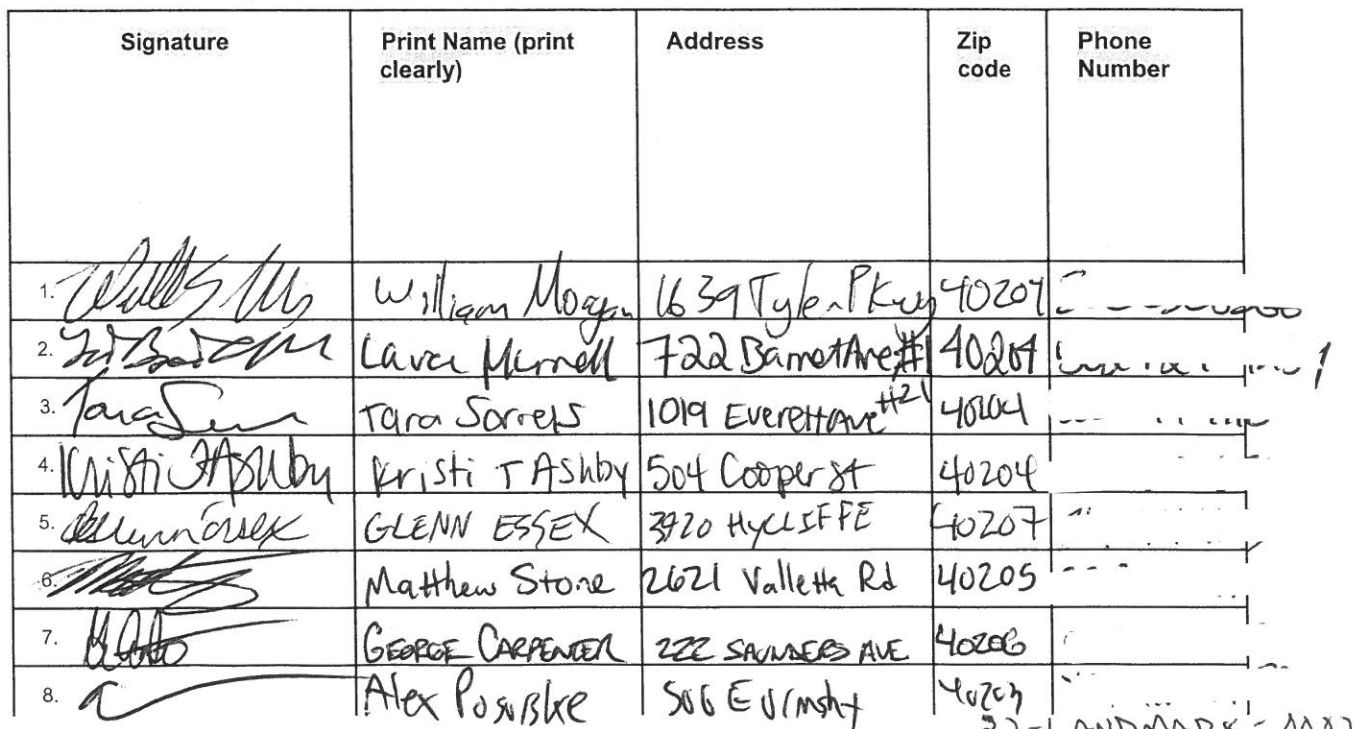 Signature Print Name (print clearly) Address Zip code Phone Number
1. William Morgan 1639 Tyler Pkwy 40204
2. 722 Barret Ave #1 40204
3. Tara Sorrels 1019 Everett Ave #21 40204
4. Kristi T Ashby Kristi T Ashby 504 Cooper St 40204
5. Glenn Essex GLENN ESSEX 3920 HYCLIFFE 40207
6. Matthew Stone 2621 Valletta Rd 40205
7. GEORGE CARPENTER 222 SAUNDERS AVE 40206
8. Alex 506 E 40203
LANDMARK